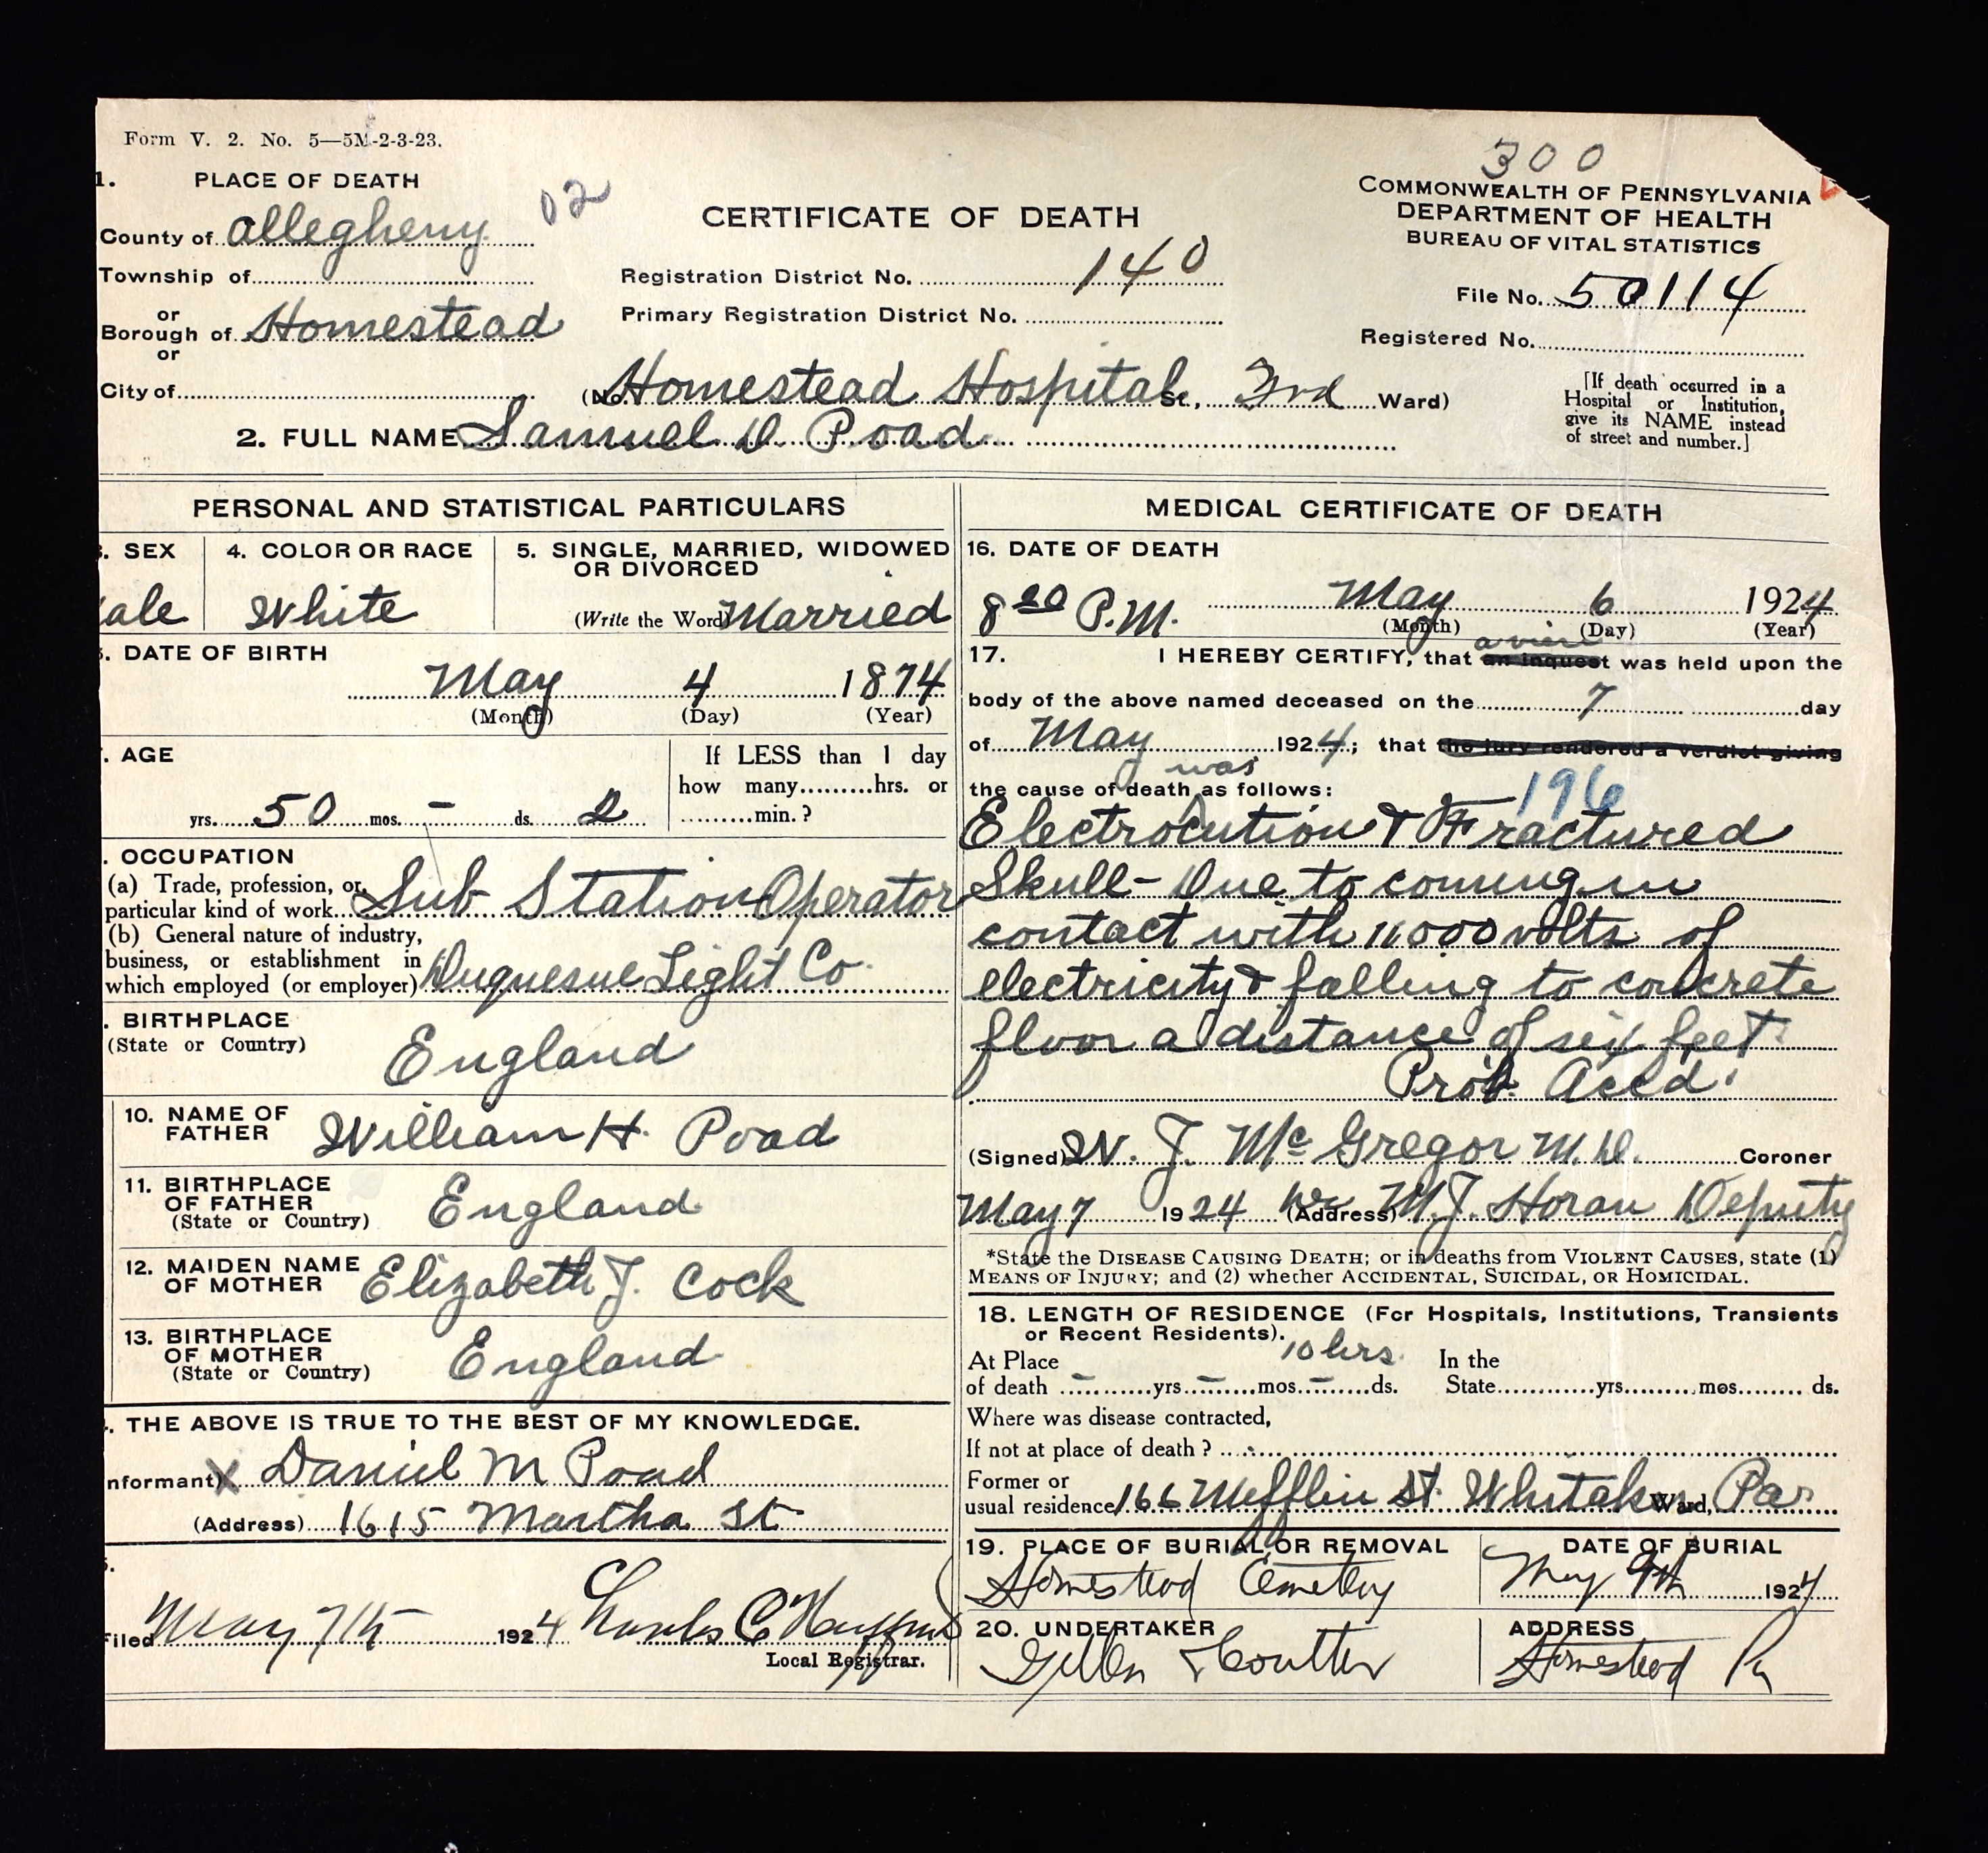 Form V. 2. No. 5—5M-2-3-23.
300
1. PLACE OF DEATH
02
County of Allegheny
Township of
or
Borough of Homestead
or
City of
CERTIFICATE OF DEATH
Registration District No. 140
Primary Registration District No.
(No. Homestead Hospital St., 3rd Ward)
COMMONWEALTH OF PENNSYLVANIA
DEPARTMENT OF HEALTH
BUREAU OF VITAL STATISTICS
File No. 50114
Registered No.
[If death occurred in a
Hospital or Institution,
give its NAME instead
of street and number.]
2. FULL NAME Samuel D Poad
PERSONAL AND STATISTICAL PARTICULARS
. SEX
ale
4. COLOR OR RACE
White
5. SINGLE, MARRIED, WIDOWED
OR DIVORCED
(Write the Word) Married
. DATE OF BIRTH
May 4 1874
(Month) (Day) (Year)
. AGE
yrs. 50 mos. - ds. 2
If LESS than 1 day
how many.........hrs. or
.........min.?
. OCCUPATION
(a) Trade, profession, or
particular kind of work Sub Station Operator
(b) General nature of industry,
business, or establishment in
which employed (or employer) Duquesne Light Co.
. BIRTHPLACE
(State or Country)
England
10. NAME OF
FATHER William H. Poad
11. BIRTHPLACE
OF FATHER
(State or Country) England
12. MAIDEN NAME
OF MOTHER Elizabeth J. Cock
13. BIRTHPLACE
OF MOTHER
(State or Country) England
. THE ABOVE IS TRUE TO THE BEST OF MY KNOWLEDGE.
nformant) X Daniel M Poad
(Address) 1615 Martha St
Filed May 7th 1924 Charles C
Local Registrar.
MEDICAL CERTIFICATE OF DEATH
16. DATE OF DEATH
8 20 P.M. May 6 1924
(Month) (Day) (Year)
a view
17. I HEREBY CERTIFY, that an inquest was held upon the
body of the above named deceased on the 7 day
of May 1924; that the jury rendered a verdict giving
was
the cause of death as follows:
196
Electrocution & Fractured
Skull - Due to coming in
contact with 11000 volts of
electricity & falling to concrete
floor a distance of six feet.
Prob. Accd.
(Signed) W. J. McGregor M.D. Coroner
May 7 1924 (Address) M.J. Horan Deputy
*State the DISEASE CAUSING DEATH; or in deaths from VIOLENT CAUSES, state (1)
MEANS OF INJURY; and (2) whether ACCIDENTAL, SUICIDAL, OR HOMICIDAL.
18. LENGTH OF RESIDENCE (For Hospitals, Institutions, Transients
or Recent Residents).
10 hrs.
At Place In the
of death - yrs - mos - ds. State yrs mos ds.
Where was disease contracted,
If not at place of death?
Former or
usual residence 166 Mifflin St. Whitaker Ward, Pa.
19. PLACE OF BURIAL OR REMOVAL
Homestead Cemetery
DATE OF BURIAL
May 9th 1924
20. UNDERTAKER
& Coulter
ADDRESS
Homestead Pa